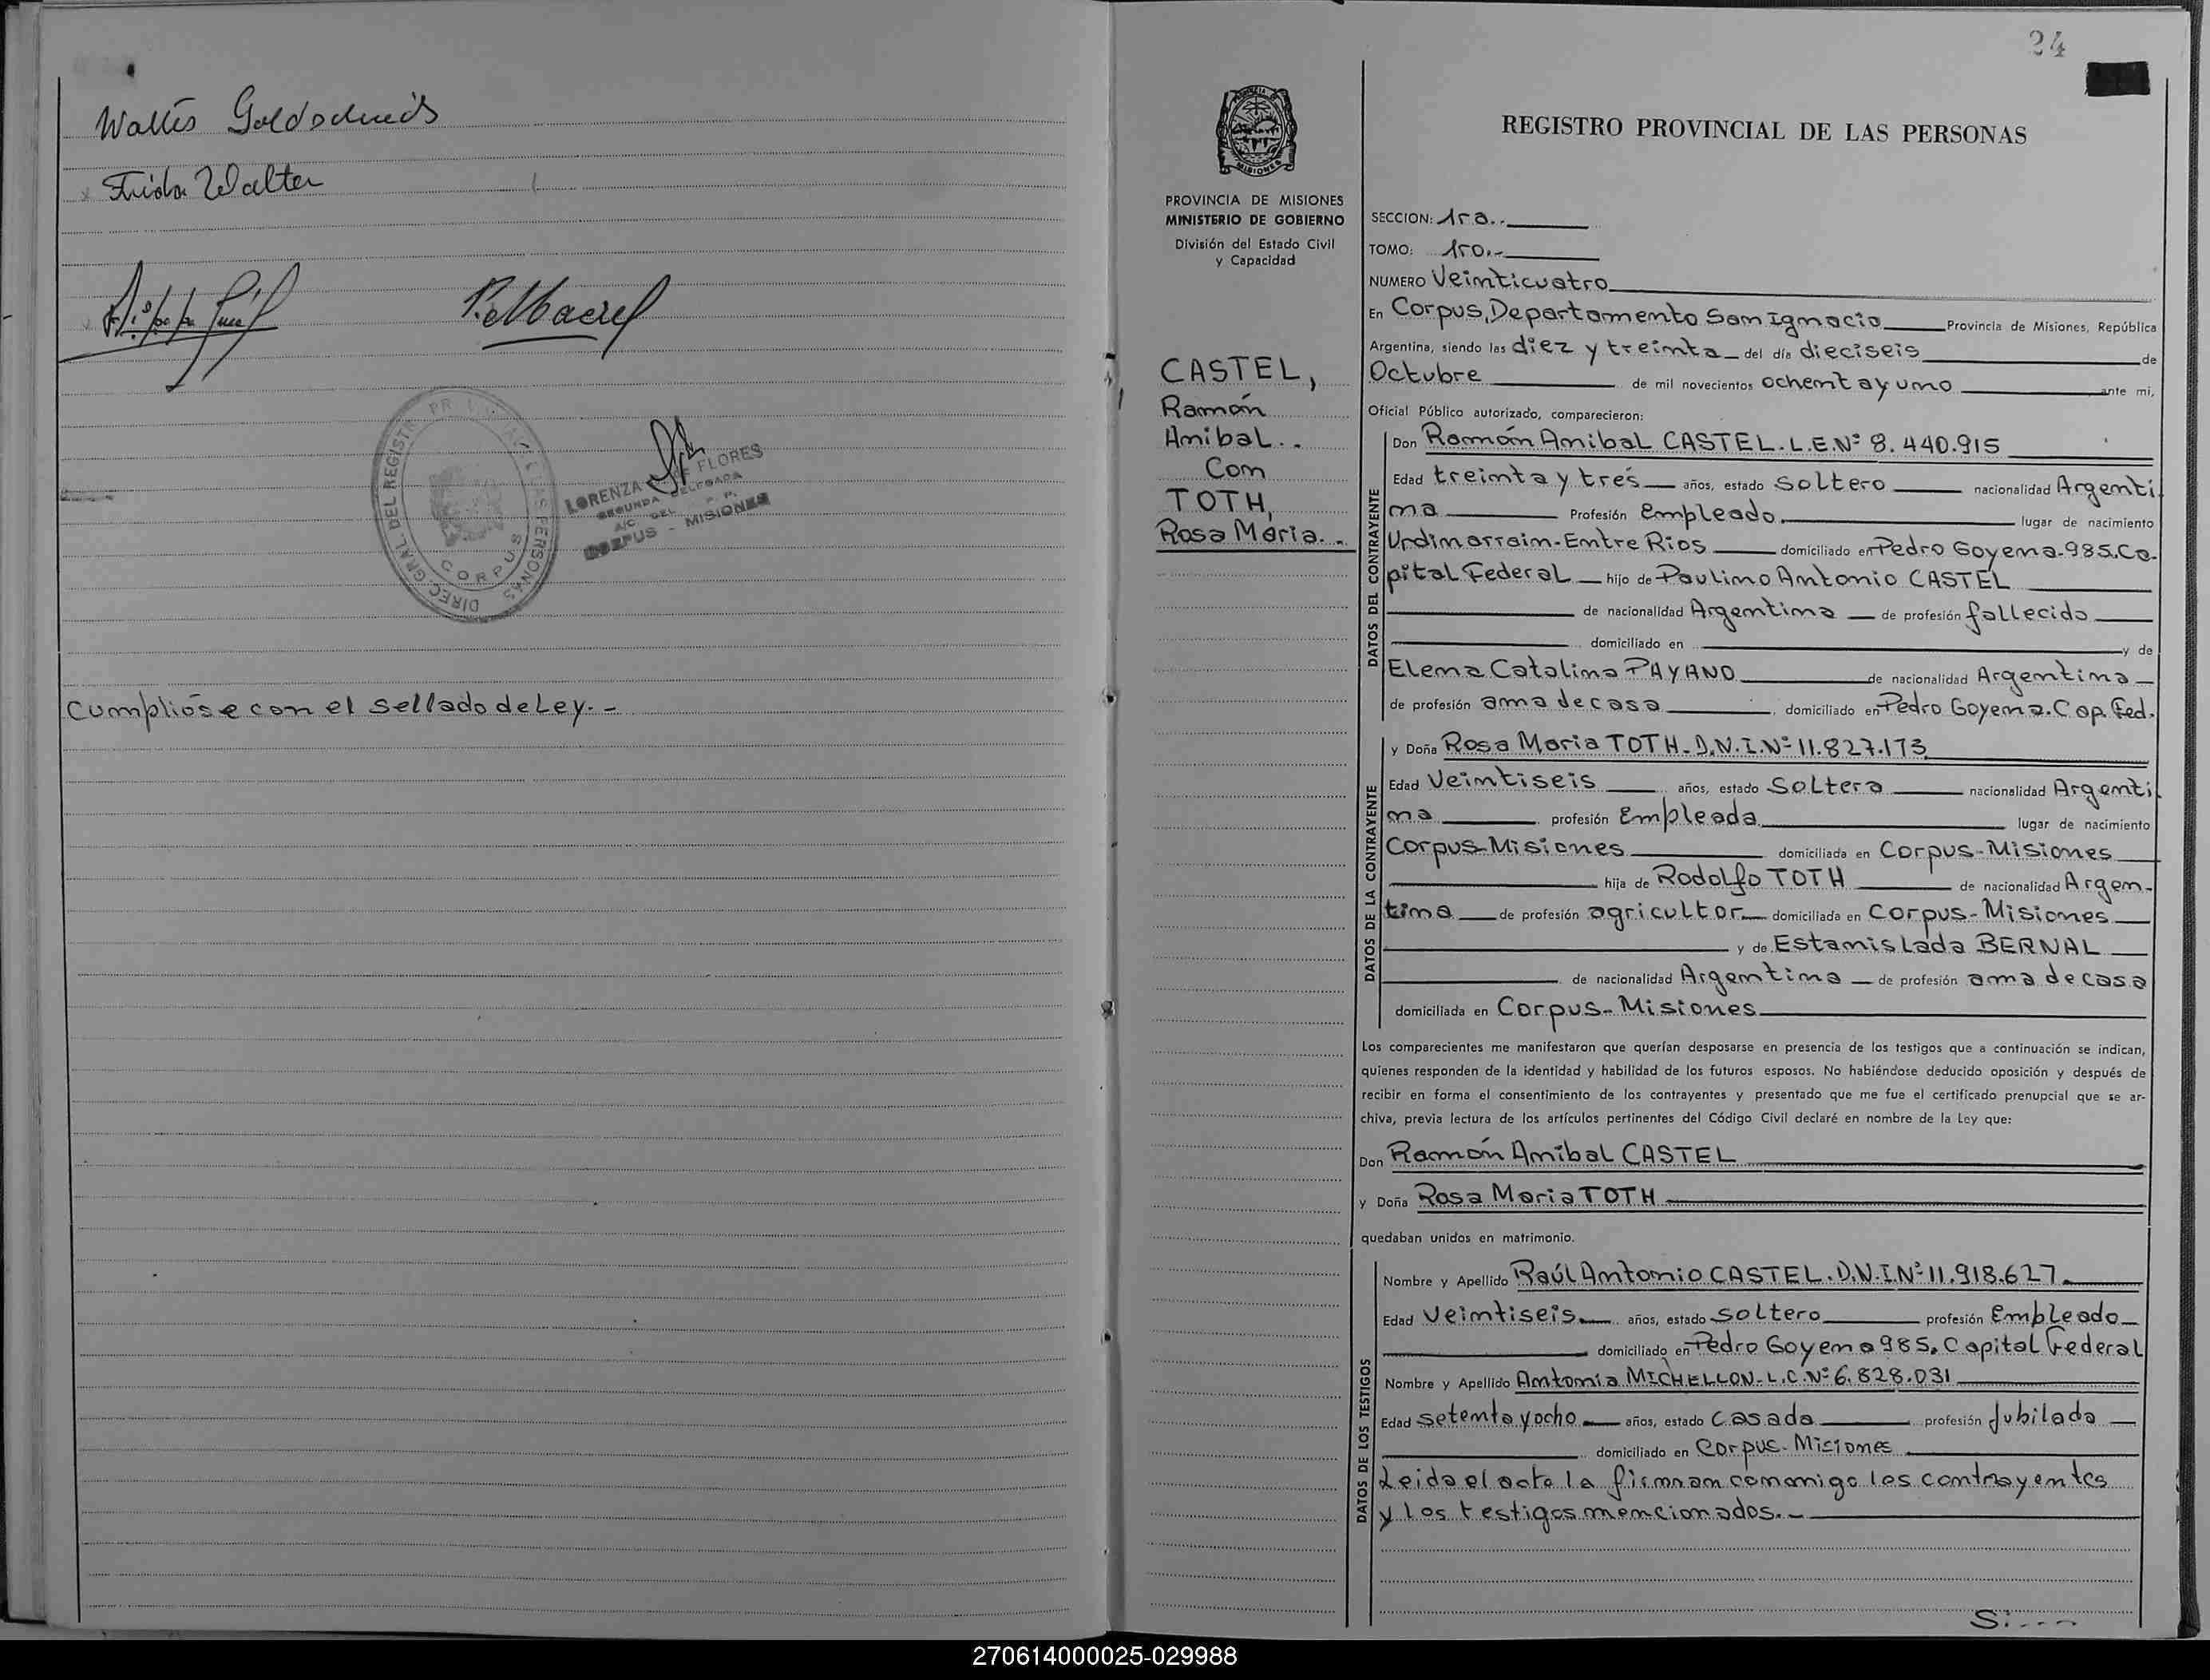 Frida Walter
DIREC. GRAL. DEL REGISTR
PERSONAS
CORPUS
LORENZA DE FLORES
SEGUNDA DELEGADA
A/C DEL R. P.
CORPUS - MISIONES
Cumpliose con el sellado de Ley.-
24
PROVINCIA DE MISIONES
MINISTERIO DE GOBIERNO
División del Estado Civil
y Capacidad
CASTEL,
Ramón
Anibal..
Con
TOTH,
Rosa María..
REGISTRO PROVINCIAL DE LAS PERSONAS
SECCION: 1ra..
TOMO: 1ro.-
NUMERO Veinticuatro
En Corpus, Departamento San Ignacio Provincia de Misiones, República
Argentina, siendo las diez y treinta del día dieciseis de
Octubre de mil novecientos ochenta y uno ante mi,
Oficial Público autorizado, comparecieron:
DATOS DEL CONTRAYENTE
Don Ramón Anibal CASTEL. L.E.Nº 8.440.915
Edad treinta y tres años, estado soltero nacionalidad Argenti
na Profesión Empleado lugar de nacimiento
Urdinarrain-Entre Rios domiciliado en Pedro Goyena-985.Ca-
pital Federal hijo de Paulino Antonio CASTEL
de nacionalidad Argentina de profesión fallecido
domiciliado en y de
Elena Catalina PAYANO de nacionalidad Argentina
de profesión ama de casa domiciliado en Pedro Goyena. Cap. Fed.
DATOS DE LA CONTRAYENTE
y Doña Rosa Maria TOTH- D.N.I.Nº 11.827.173
Edad Veintiseis años, estado Soltera nacionalidad Argenti
na profesión Empleada lugar de nacimiento
Corpus-Misiones domiciliada en Corpus-Misiones
hija de Rodolfo TOTH de nacionalidad Argen-
tina de profesión agricultor domiciliada en Corpus-Misiones
y de Estanislada BERNAL
de nacionalidad Argentina de profesión ama de casa
domiciliada en Corpus-Misiones
Los comparecientes me manifestaron que querían desposarse en presencia de los testigos que a continuación se indican,
quienes responden de la identidad y habilidad de los futuros esposos. No habiéndose deducido oposición y después de
recibir en forma el consentimiento de los contrayentes y presentado que me fue el certificado prenupcial que se ar-
chiva, previa lectura de los artículos pertinentes del Código Civil declaré en nombre de la Ley que:
Don Ramón Anibal CASTEL
y Doña Rosa Maria TOTH
quedaban unidos en matrimonio.
DATOS DE LOS TESTIGOS
Nombre y Apellido Raúl Antonio CASTEL. D.N.I.Nº 11.918.627
Edad Veintiseis años, estado Soltero profesión Empleado
domiciliado en Pedro Goyena 985. Capital Federal
Nombre y Apellido Antonia MICHELLON- L.C.Nº 6.828.031
Edad setenta y ocho años, estado Casada profesión Jubilada
domiciliado en Corpus-Misiones
Leida el acta la firman conmigo los contrayentes
y los testigos mencionados.-
270614000025-029988